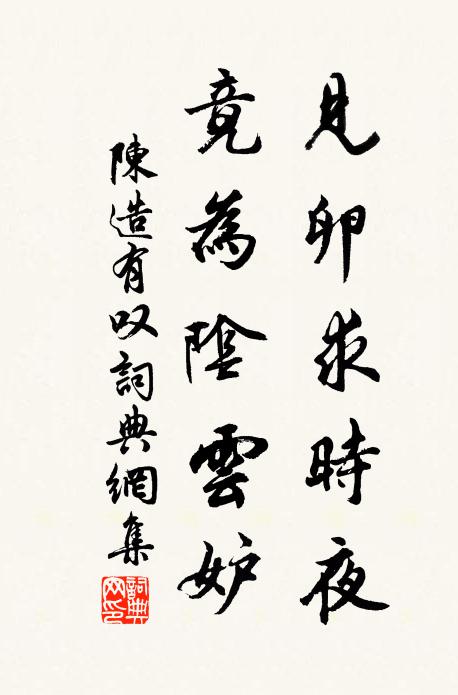 見卵求時夜
竟為陰雲妒
陳造有叹詞典網集
詞典網印